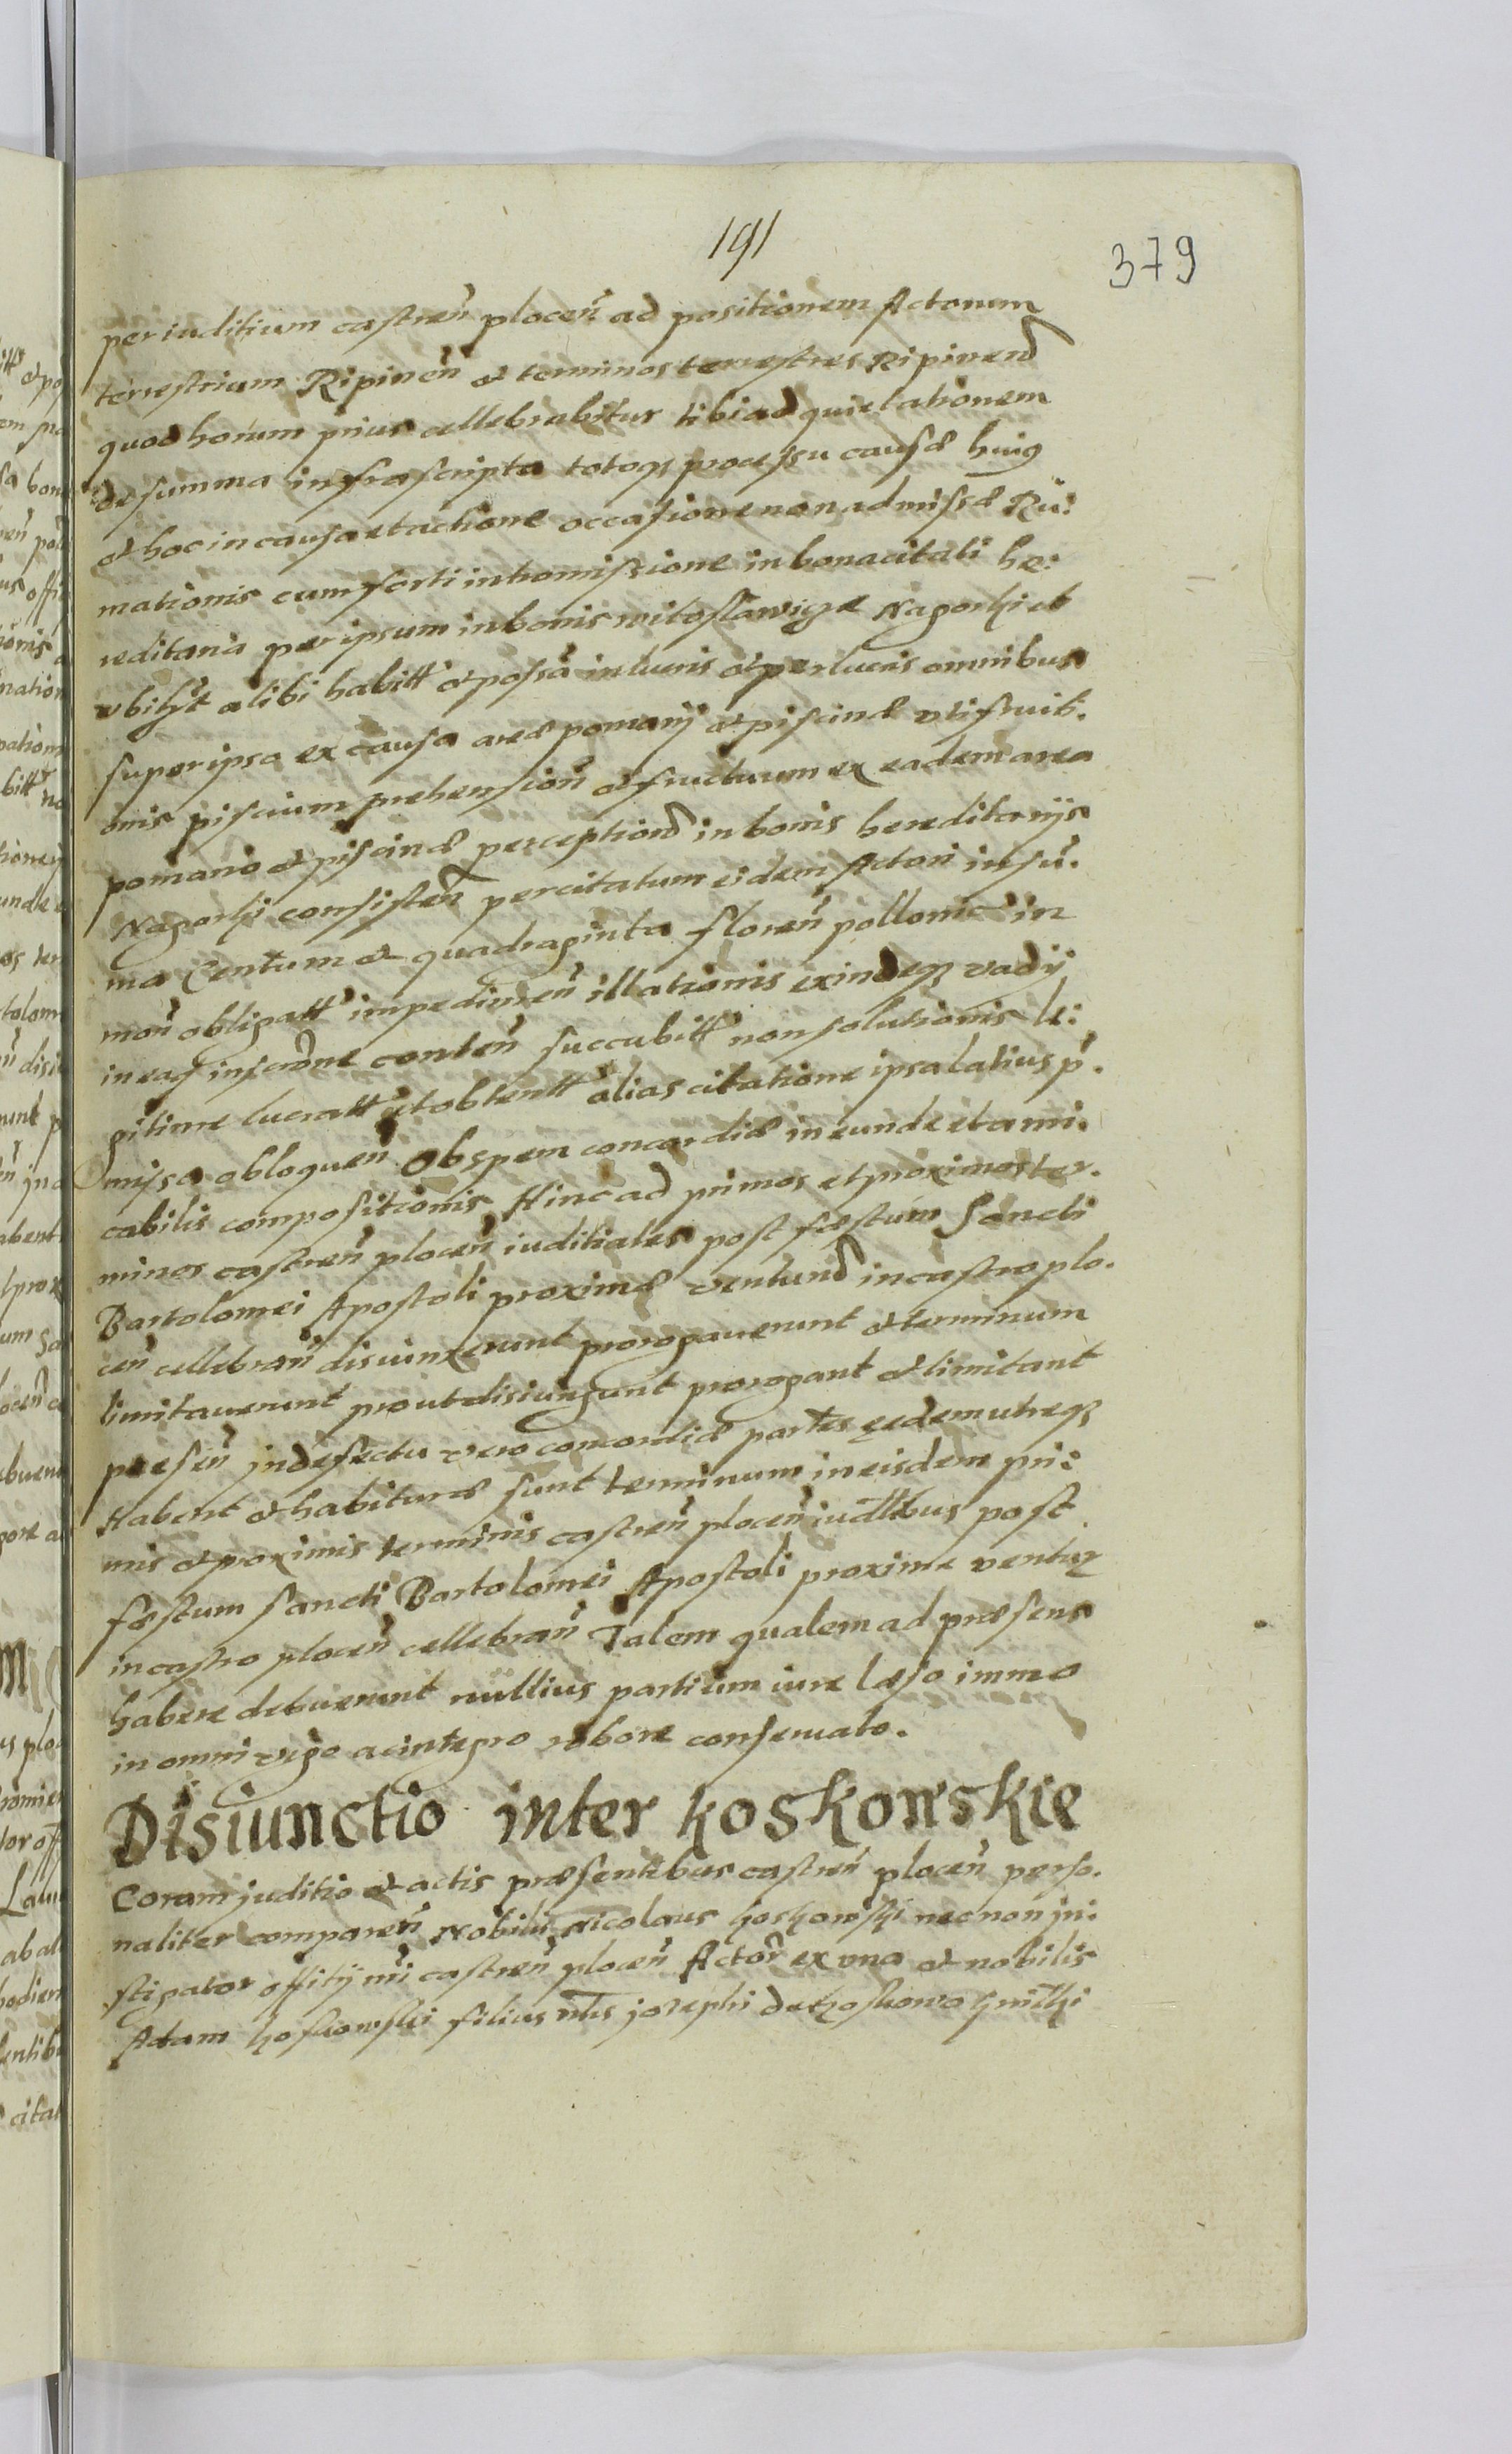 191
379
per iuditium castren̄ plocen̄ ad positionem Actorum
terrestrium Ripinen̄ et terminos terrestres Ripinen̄
quod horum prius cellebrabitur tibi ad quietationem
de summa infrascripta totoqȝ processu causæ huiꝯ
et hoc in causa et actione occasione non admissæ Ru:
mationis cum forti intromissione in bona citati he:
reditaria per ipsum in bonis witoslawicze Nagorki et
vbilȝt alibi habitt et possa in lucris et perlucris omnibus
super ipso ex causa areæ pomarij et piscinæ vti fruit.
onis piscium prehension̄ et fructuum ex eadem area
pomario et piscinæ perception̄ in bonis hereditarijs
Nagorki consisten̄ per citatum eidem Actori in su.
ma Centum et quadraginta floren̄ pollonic in
mon̄ obligatt impedimen̄ illationis exindeqȝ vadij
in eaqȝ inscrōne conten̄ succubitt non solutionis le:
gitime lucratt et obtentt alias citatione ipsa latius p̄.
missa obloquen̄ Ob spem concordiæ ineundæ et ami.
cabilis compositionis Hinc ad primos et proximos ter.
minos castren̄ plocen̄ iuditiales post fæstum Sancti
Bartolomei Apostoli proximæ ventun̄ in castro plo.
cen̄ cellebran̄ disiunxerunt prorogauerunt et terminum
limitauerunt prout disiungunt prorogant et limitant
presen̄ jn defectu vero concordiæ partes eædem utreqȝ
Habent et habituræ sunt terminum in eisdem pri:
mis et proximis terminis castren̄ plocen̄ iudlibus post
fæstum sancti Bartolomei Apostoli proxime ventur
in castro plocen̄ cellebran̄ Talem qualem ad præsens
habere debuerunt nullius partium iure læso immo
in omni vigo ac integro robore conseruato.
Disiunctio inter koskowskie
Coram juditio et actis præsentibus castren̄ plocen̄ perso.
naliter comparen̄ Nobilis Nicolaus koskowski nec non jn:
stigator offitij mi castren̄ plocen̄ Actor ex vna et nobilis
Adam koskowski filius nlis josephi de koskowo